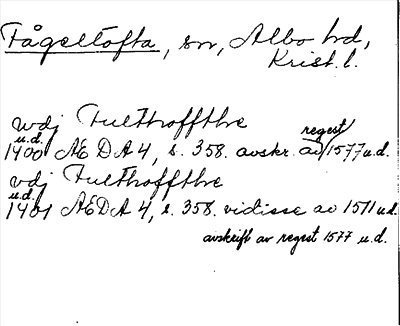 Fågeltofta, sn, Albo hd,
Krist. l.
wdj Fulthoffthe
regest
u.d.
1400 ÆDA 4, s. 358. avskr. av 1577 u.d.
vdj Fulthoffthe
u.d.
1401 ÆDA 4, s. 358. vidisse av 1511 u.d.
avskrift av regest 1577 u.d.